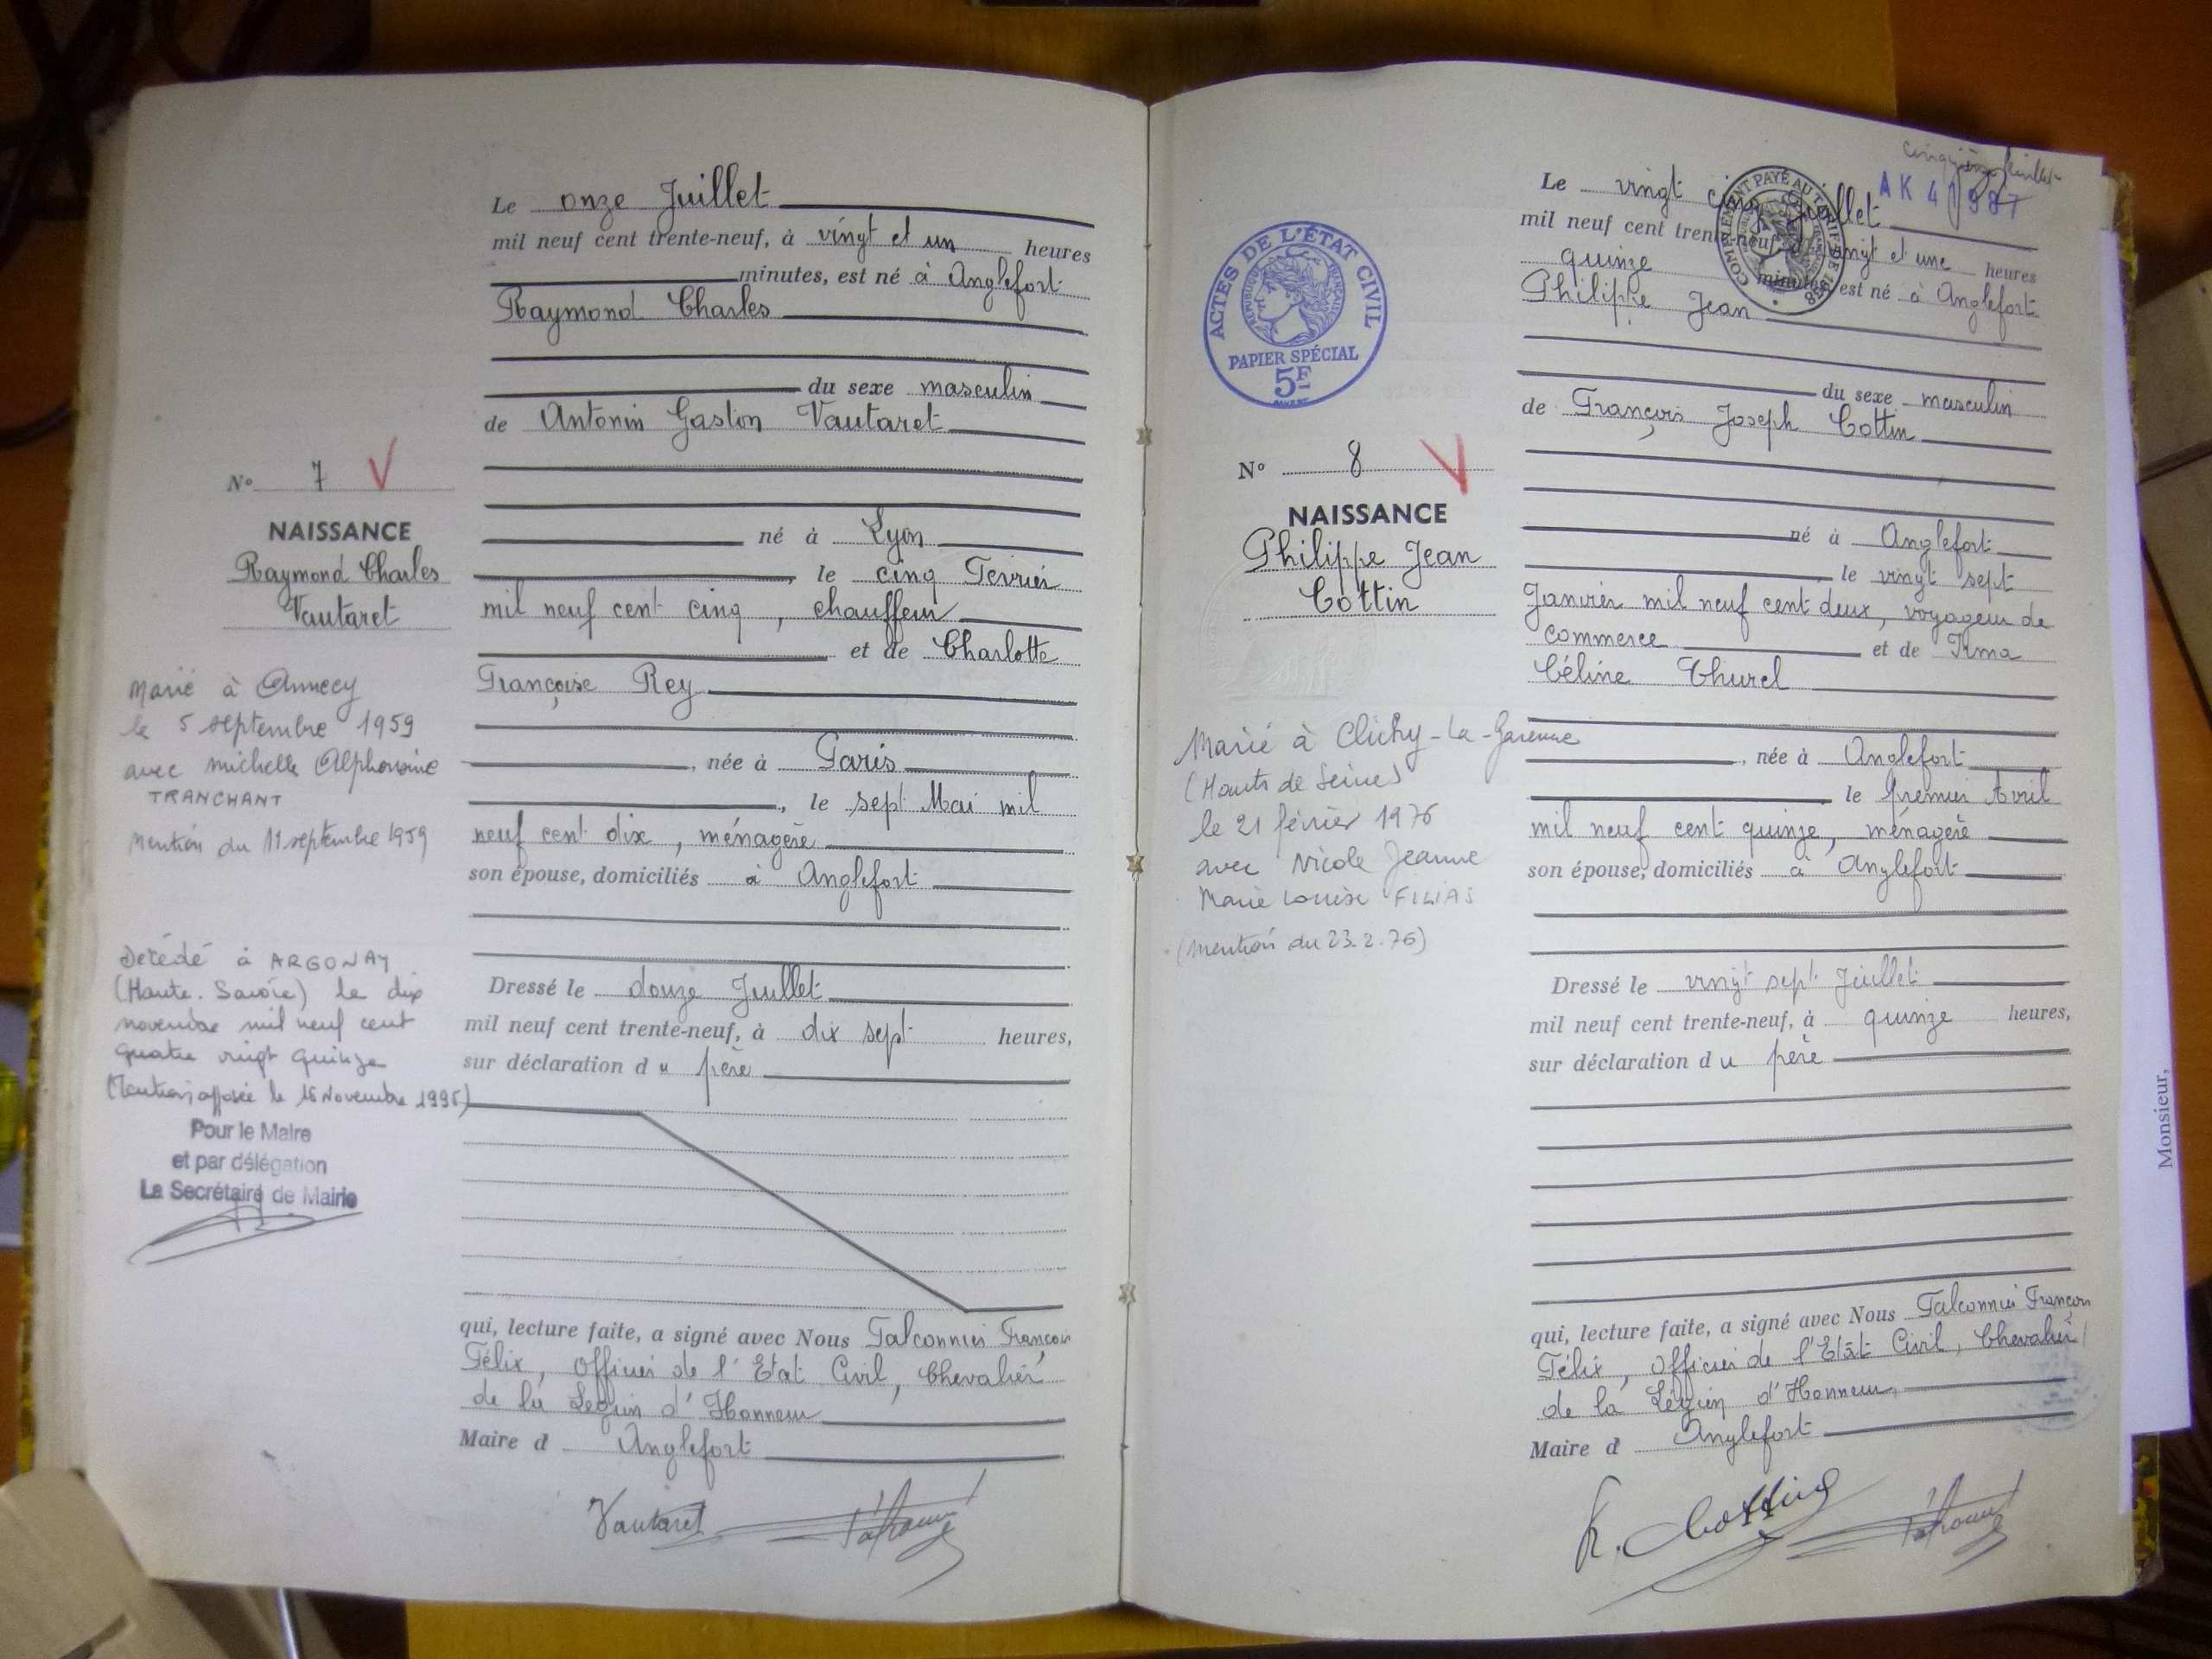 Le onze Juillet
mil neuf cent trente-neuf, à vingt et un heures
minutes, est né à Anglefort
Raymond Charles
du sexe masculin
de Antonin Gaston Vautaret
né à Lyon
le cinq Fevrier
mil neuf cent cinq, chauffeur
et de Charlotte
Françoise Rey
, née à Paris
, le sept Mai mil
neuf cent dix, ménagère
son épouse, domiciliés à Anglefort
Dressé le douze Juillet
mil neuf cent trente-neuf, à dix sept heures,
sur déclaration du père
qui, lecture faite, a signé avec Nous Falconnier François
Félix, Officier de l'Etat Civil, Chevalier
de la Légion d'Honneur
Maire d Anglefort
Vautaret
N° 7 V
NAISSANCE
Raymond Charles
Vautaret
Marié à Annecy
le 5 septembre 1959
avec Michelle Alphonsine
TRANCHANT
Mention du 11 septembre 1959
Décédé à ARGONAY
(Haute-Savoie) le dix
novembre mil neuf cent
quatre vingt quinze
(Mention apposée le 16 Novembre 1995)
Pour le Maire
et par délégation
La Secrétaire de Mairie
cinquième feuillet
AK 4 987
COMPLÉMENT PAYÉ AU TARIF DE 1938
ACTES DE L'ÉTAT CIVIL
RÉPUBLIQUE FRANÇAISE
PAPIER SPÉCIAL
5F
Le vingt cinq Juillet
mil neuf cent trente-neuf, à vingt et une heures
quinze minutes, est né à Anglefort
Philippe Jean
du sexe masculin
de François Joseph Cottin
né à Anglefort
le vingt sept
Janvier mil neuf cent deux, voyageur de
commerce et de Irma
Céline Thurel
, née à Anglefort
le premier Avril
mil neuf cent quinze, ménagère
son épouse, domiciliés à Anglefort
Dressé le vingt sept Juillet
mil neuf cent trente-neuf, à quinze heures,
sur déclaration du père
qui, lecture faite, a signé avec Nous Falconnier François
Félix, Officier de l'Etat Civil, Chevalier
de la Légion d'Honneur,
Maire d Anglefort
F. Cottin
N° 8 V
NAISSANCE
Philippe Jean
Cottin
Marié à Clichy-La-Garenne
(Hauts de Seine)
le 21 février 1976
avec Nicole Jeanne
Marie Louise FILIAS
(mention du 23.2.76)
Monsieur,